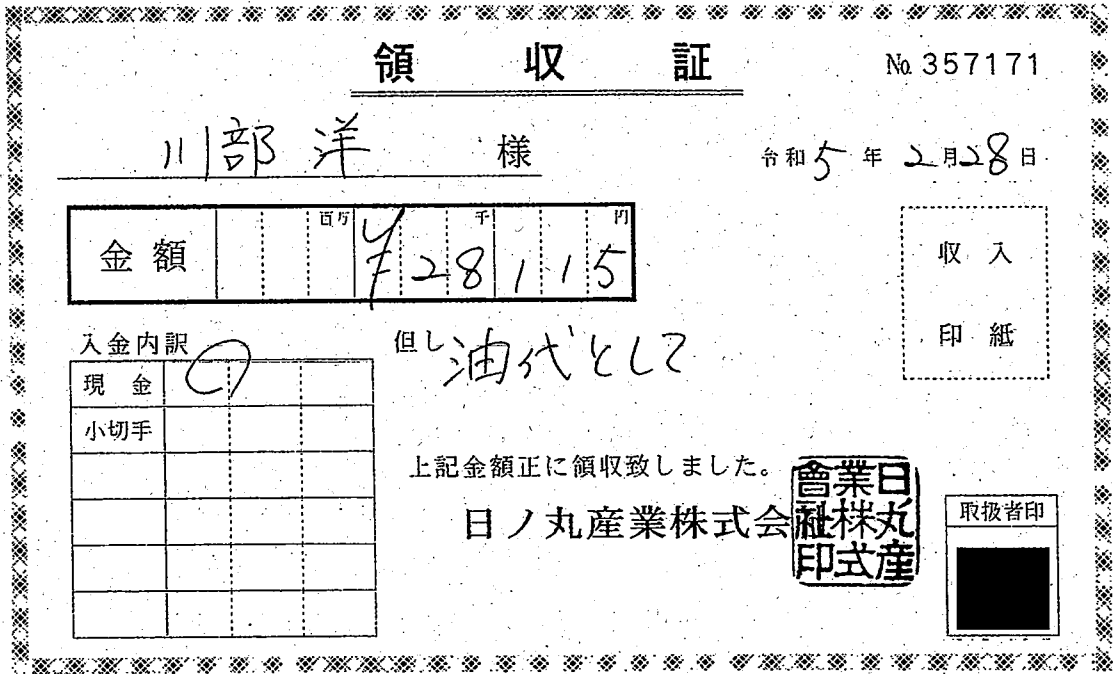 領収証
№ 357171
川部 洋 様
令和5年2月28日
金額 百万 千 円
¥28115
収入
印紙
入金内訳
現金
小切手
但し 油代として
上記金額正に領収致しました。
日ノ丸産業株式会社
日丸産業株式會社印
取扱者印